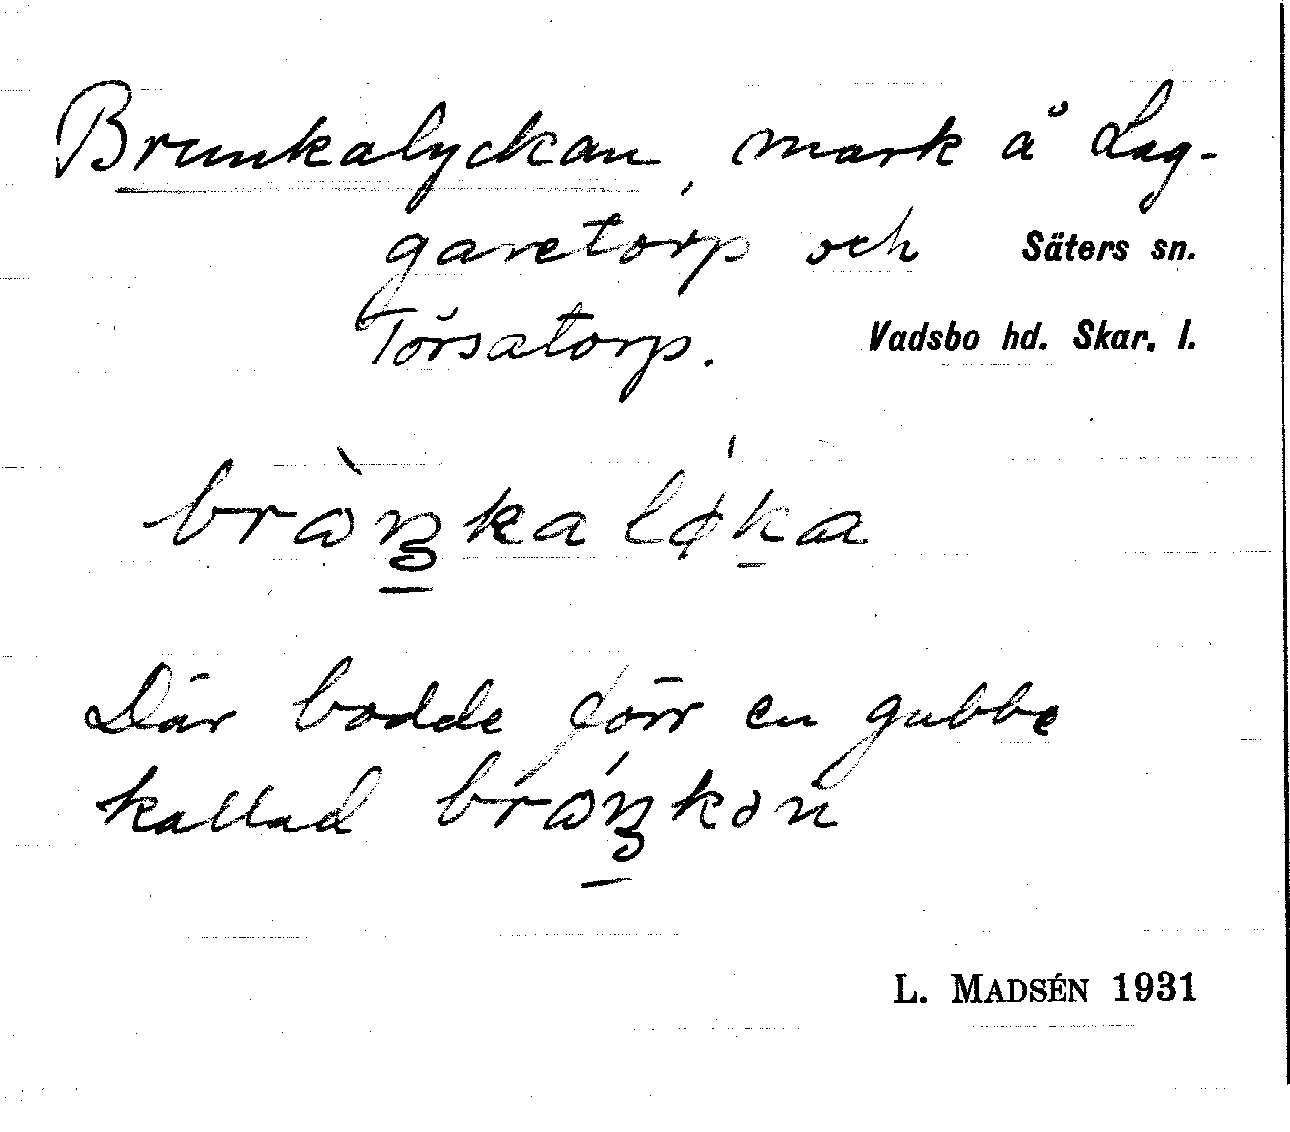 Brunkalyckan, mark å Lag-
garetorp och Säters sn.
Törsatorp. Vadsbo hd. Skar. l.
brὼŋkalø̀ka
Där bodde förr en gubbe
kallad
L. MADSÉN 1931